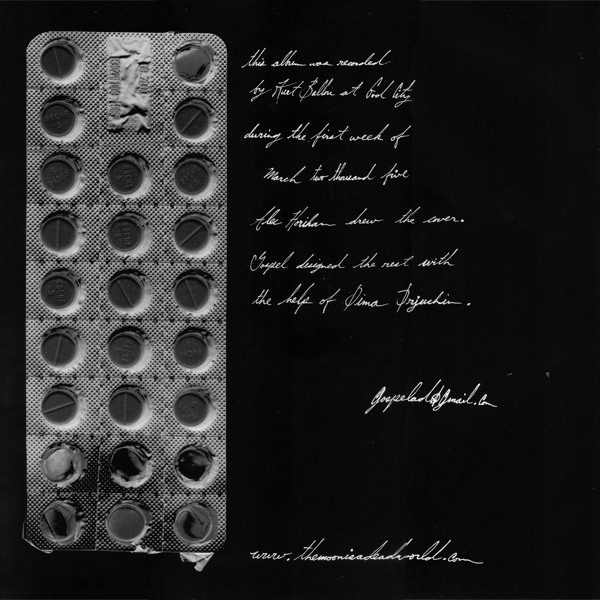 this album was recorded
by Kurt Ballou at God City
during the first week of
March two thousand five
Alec Horihan drew the cover.
Gospel designed the rest with
the help of Dima Drjuchin.
@gmail.com
www.themoonisadeadworld.com